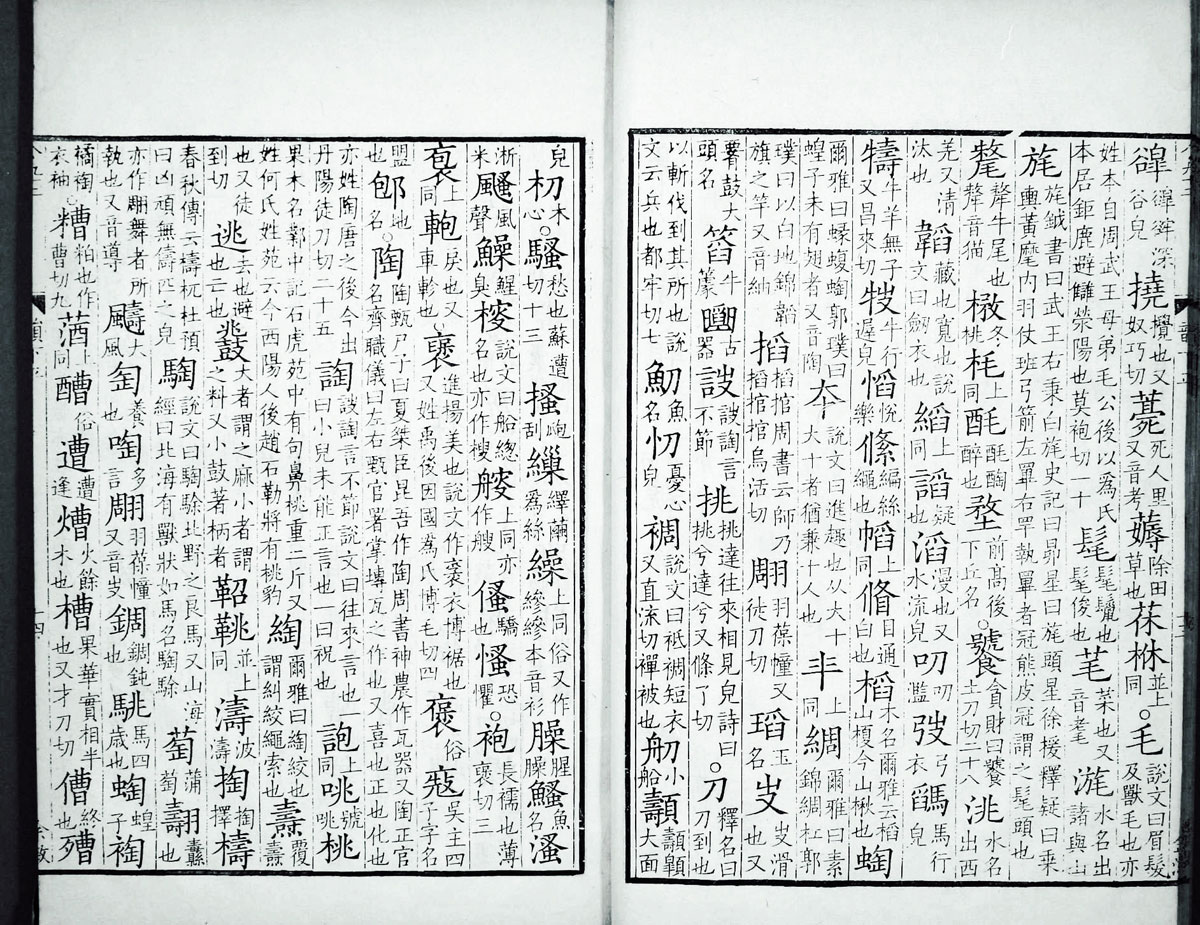 撓攪也又奴巧切薧死人里又音考薅除田草也茠㧅並上同○毛說文曰眉髮及獸毛也亦
姓本自周武王母弟毛公後以爲氏本居鉅鹿避讎滎陽也莫袍切一十髦髦鬣也髦俊也芼菜也又音耄水名出諸與山
旄旄鉞書曰武王右秉白旄史記曰昴星曰旄頭星徐援釋疑曰乘輿黃麾內羽仗班弓箭左罼右罕執罼者冠熊皮冠謂之髦頭也
氂犛牛尾也犛音貓冬桃枆上同酕酕醄醉也堥前高後下丘名○饕貪財曰饕土刀切二十八洮水名出西
羌又清汰也韜藏也寬也說文曰劒衣也縚上同謟疑也滔漫也又水流皃叨叨濫弢弓衣馬行皃
牛羊無子又昌來切牛行遲皃慆悅樂絛編絲繩也幍上同目通白也槄木名爾雅云槄山榎今山楸也蜪
爾雅曰蝝蝮蜪郭璞曰蝗子未有翅者又音陶夲說文曰進趣也从大十大十者猶兼十人也上同綢爾雅曰素錦綢杠郭
璞曰以白地錦韜旗之竿又音紬搯搯捾周書云師乃搯搯捾烏活切翢羽葆幢又徒刀切瑫玉名滑也又
鼓大頭名牛䉛古器詜詜䛬言不節挑挑達往來相見皃詩曰挑兮達兮又條了切○刀釋名曰刀到也
以斬伐到其所也說文云兵也都牢切七魛魚名忉憂心皃裯說文曰衹裯短衣又直流切襌被也舠小船大面
皃朷木心○騷愁也蘇遭切十三搔爬刮繅繹繭爲絲繰上同俗又作縿縿本音衫臊腥臊鰠魚名溞
淅米颾風聲鱢鯹臭說文曰船總名也亦作艘上同亦作艘慅恐懼○袍長襦也薄褒切三
上同軳戾也又車軫也○襃進揚美也說文作襃衣博裾也又姓禹後因國爲氏博毛切四褒俗吳主四子字名
盟也地名○陶陶甄尸子曰夏桀臣昆吾作陶周書神農作瓦器又陶正官名齊職儀曰左右甄官署掌塼瓦之作也又喜也正也化也
亦姓陶唐之後今出丹陽徒刀切二十五䛬詜䛬言不節說文曰往來言也一曰小兒未能正言也一曰祝也上同咷號咷桃
果木名鄴中記石虎苑中有句鼻桃重二斤又姓何氏姓苑云今西陽人後趙石勒將有桃豹綯爾雅曰綯絞也謂糾絞繩索也燾覆燾
也又徒到切逃去也避也亡也鼗大者謂之麻小者謂之料又小鼓著柄者鞀鞉並上同濤波濤掏掏擇檮
春秋傳云檮杌杜預曰凶頑無儔匹之皃騊說文曰騊駼北野之良馬又山海經曰北海有獸狀如馬名騊駼萄蒲萄翿纛也
亦作翢舞者所執也又音導大風匋養也啕多言翢羽葆幢又音𠬢錭錭鈍駣馬四歲也蜪蝗子裪
褠裪衣袖○糟粕也作曹切九上同醩俗遭遭逢傮火餘木也槽果華實相半也又才刀切傮終也殧